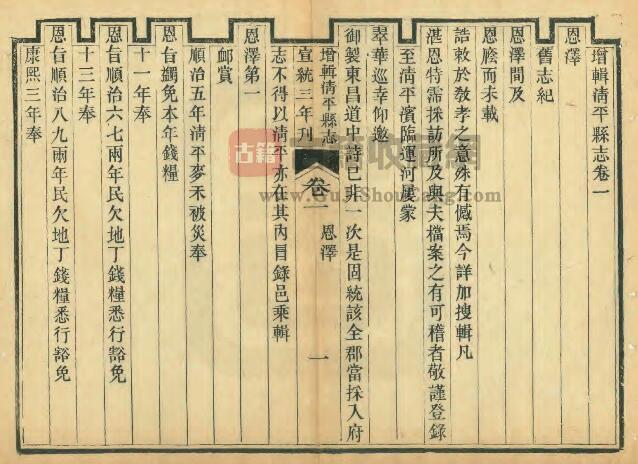 增輯清平縣志卷一
恩澤
舊志紀
恩澤間及
恩賒而未載
誥敕於教孝之意殊有憾焉今詳加搜輯凡
湛恩特霈採訪所及與夫檔案之有可稽者敬謹登錄
至清平濱臨運河屢蒙
翠華巡幸仰邀
御製東昌道中詩已非一次是固統該全郡當採入府
增輯清平縣志
宣統三年刊
卷一
恩澤
一
志不得以清平亦在其內冒錄邑乘輯
恩澤第一
卹賞
順治五年清平麥禾被災奉
恩旨蠲免本年錢糧
十一年奉
恩旨順治六七兩年民欠地丁錢糧悉行豁免
十三年奉
恩旨順治八九兩年民欠地丁錢糧悉行豁免
康熙三年奉
古籍
收藏網
www.GuJiShouCang.com